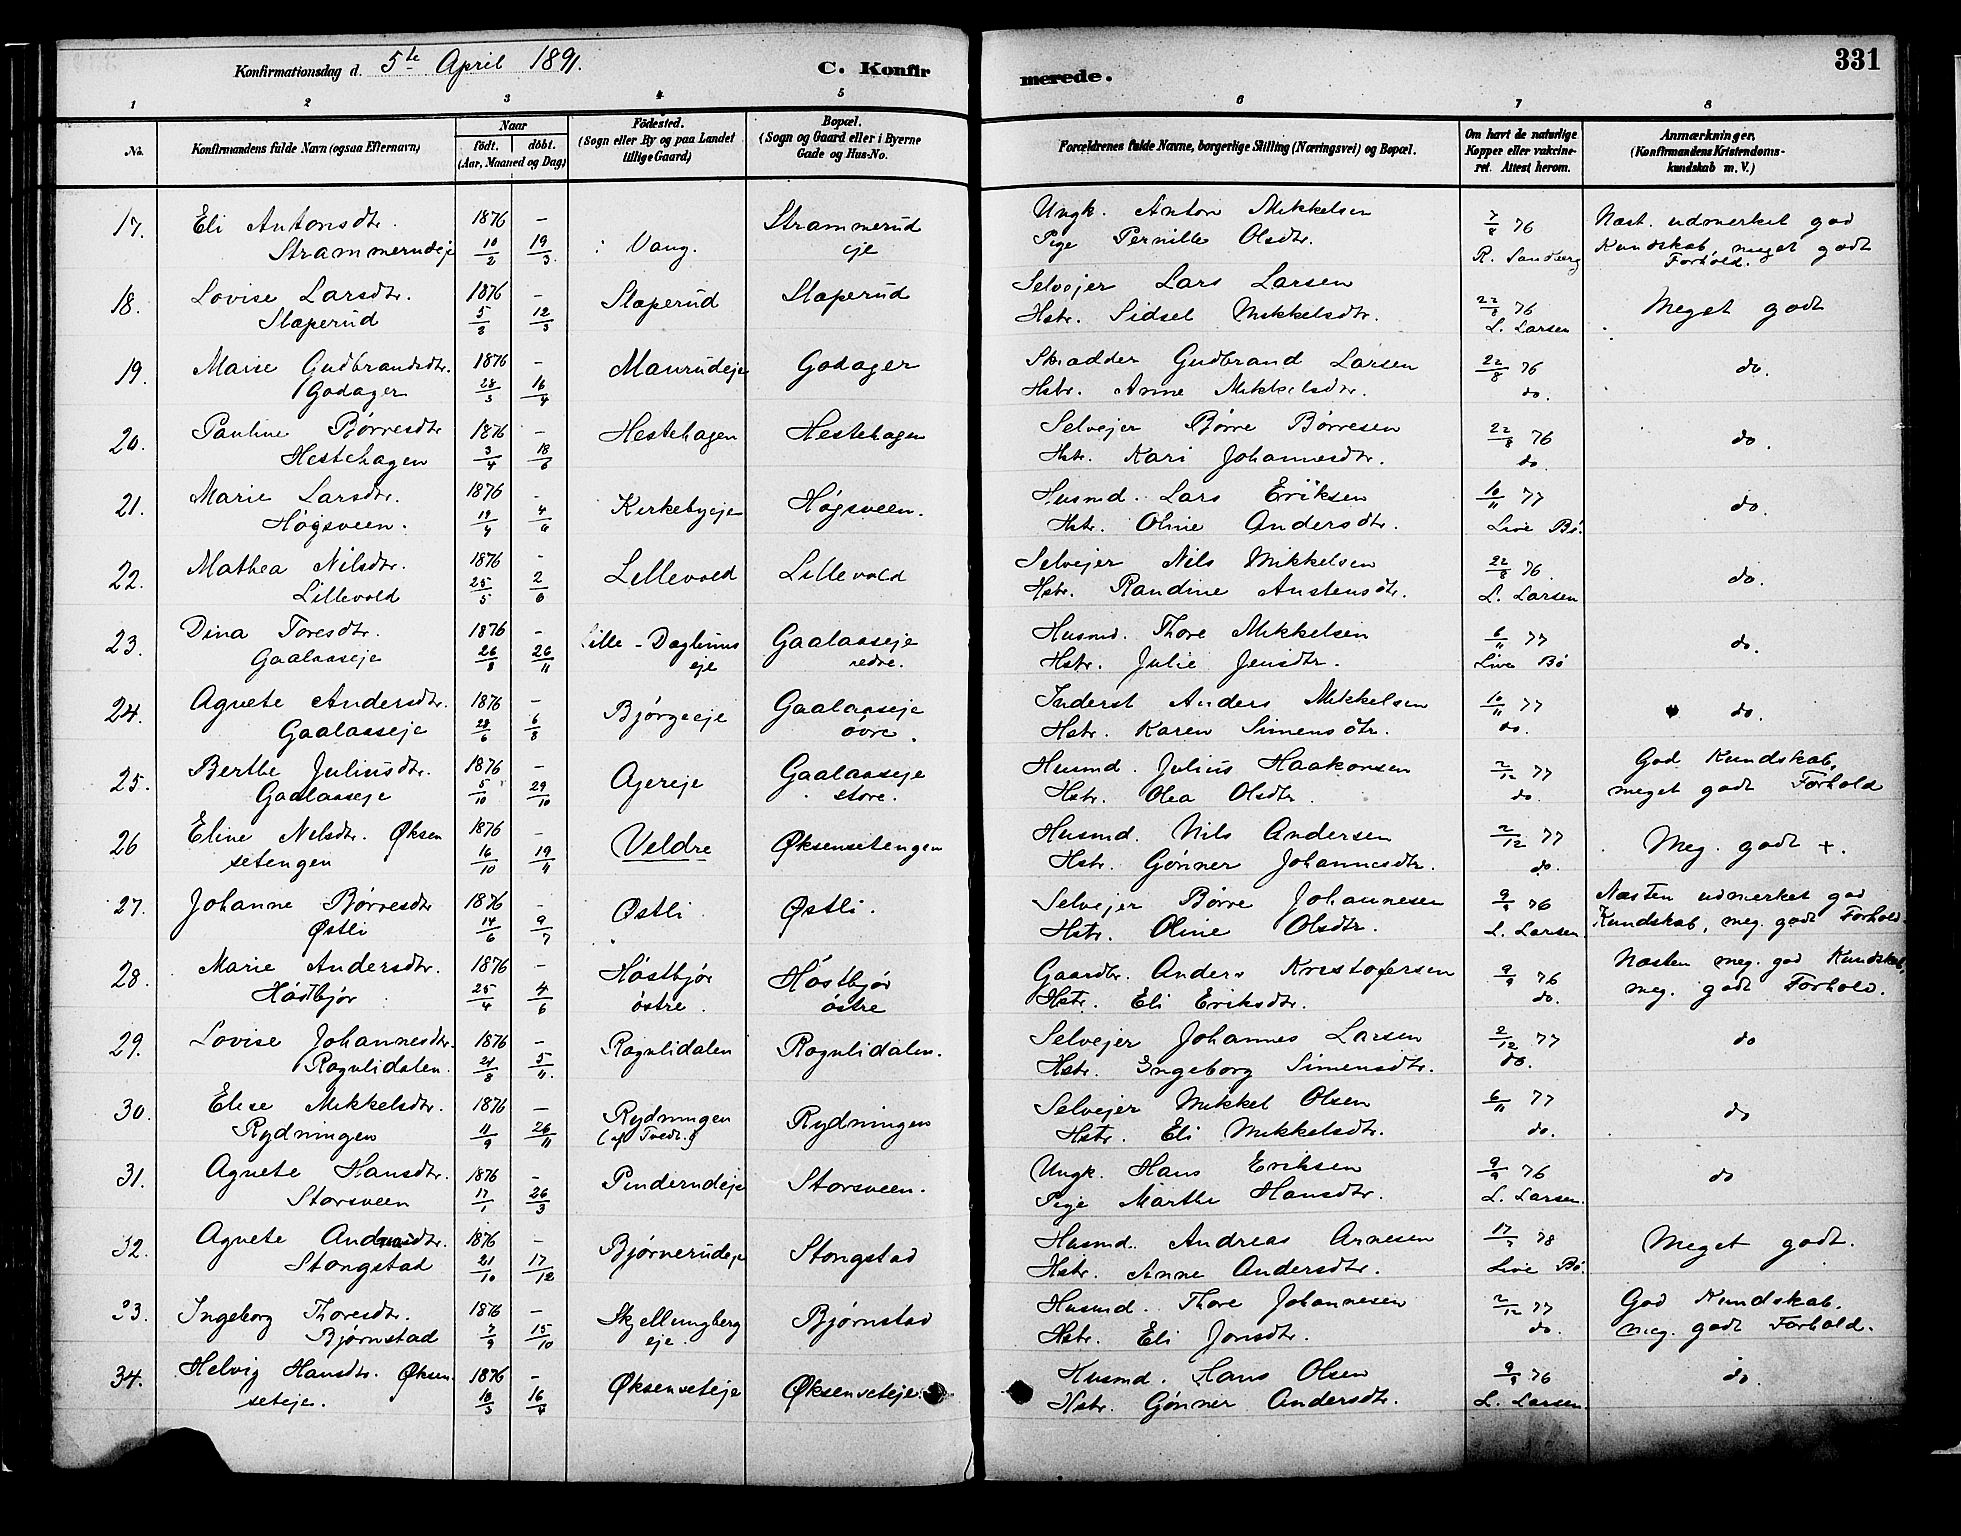 Konfirmationsdag d. 5te April 1891. C. Konfirmerede. 331
1 2 3 4 5 6 7 8
No. Konfirmandens fulde Navn (ogsaa Efternavn) Naar födt. döbt. (Aar, Maaned og Dag) Födested. (Sogn eller By og paa Landet tillige Gaard) Bopæl. (Sogn og Gaard eller i Byerne Gade og Hus-No. Forældrenes fulde Navne, borgerlige Stilling (Næringsvei) og Bopæl. Om havt de naturlige Kopper eller vakcineret. Attest herom. Anmærkninger. (Konfirmandens Kristendomskundskab m. V.)
17. Eli Antonsdtr. 1876 - Strammerud Ungk. Anton Mikkelsen 76 Næst. udmerket god
Strammerudeje 10/2 19/3 Vang. eje Pige Pernille Olsdtr. R. Sandberg Kundskab, meget godt Forhold.
18. Lovise Larsdtr. 1876 - Slæperud Slæperud Selvejer Lars Larsen 22/8 76 Meget godt
Slæperud 12/3 Hstr. Sidsel Mikkelsdtr. L. Larsen
19. Marie Gudbrandsdtr. 1876 - Maurudeje Godager Skrædder Gudbrand Larsen 22/8 76 do.
Godager 28/3 16/4 Hstr. Anne Mikkelsdtr. do.
20. Pauline Börresdtr 1876 - Hestehagen Hestehagen Selvejer Börre Börresen 22/8 76 do.
Hestehagen 3/4 18/6 Hstr. Kari Johannesdtr. do.
21. Marie Larsdtr. 1876 - Kirkebyeje Högsveen. Husmd. Lars Eriksen 10/11 77 do.
Högsveen. 19/4 4/6 Hstr. Oline Andersdtr. Live Bö.
22. Mathea Nilsdtr. 1876 - Lillevold Lillevold Selvejer Nils Mikkelsen 22/8 76. do.
Lillevold 25/5 2/6 Hstr. Randine Austensdtr. L. Larsen
23. Dina Toresdtr. 1876 - Lille-Daglunds Gaalaaseje Husmd. Thore Mikkelsen 6/11 77 do.
Gaalaaseje 26/8 26/11 eje nedre. Hstr. Julie Jensdtr. Live Bö
24. Agnete Andersdtr. 1876 - Bjørgeeje Gaalaaseje Inderst Anders Mikkelsen 10/11 77 do.
Gaalaaseje 28/6 6/8 övre. Hstr. Karen Simensdtr. do.
25. Berthe Juliusdtr. 1876 - Agereje Gaalaaseje Husmd. Julius Haakonsen 2/12 77 God Kundskab,
Gaalaaseje 5/10 29/10 store. Hstr. Olea Olsdtr. do. meget godt Forhold
26 Eline Nilsdtr. Øksen 1876 - Veldre Øksensetengen Husmd. Nils Andersen 2/12 77 Meg. godt +.
setengen 16/10 19/11 Hstr. Gönner Johannesdtr. do.
27. Johanne Börresdtr 1876 - Østli Østli. Selvejer Börre Johannesen 9/9 76 Næsten udmerket god
Østli 14/6 9/7 Hstr. Oline Olsdtr. L. Larsen. Kundskab, meg. godt Forhold.
28. Marie Andersdtr. 1876 - Höstbjör Höstbjör Gaardbr. Anders Kristofersen 9/9 76 Næsten meg. god Kundskab,
Höstbjör 25/4 4/6 östre. östre Hstr. Eli Eriksdtr. do. meg. godt Forhold.
29. Lovise Johannesdtr. 1876 - Rognlidalen Rognlidalen. Selvejer Johannes Larsen 2/12 77 do
Rognlidalen. 21/8 5/11. Hstr. Ingeborg Simensdtr. do.
30. Elise Mikkelsdtr. 1876 - Rydningen Rydningen Selvejer Mikkel Olsen 6/11 77 do
Rydningen 11/9 26/11 Hstr. Eli Mikkelsdtr. do.
31. Agnete Hansdtr. 1876 - Pinderudeje Storsveen. Ungk. Hans Eriksen 9/9 76 do
Storsveen 17/1 26/3 Pige Marthe Hansdtr. L. Larsen.
32. Agnete Andreasdtr. 1876 - Bjørnerudeje Stongstad Husmd. Andreas Arnesen 78 Meget godt.
Stongstad 21/10 17/12 Hstr. Anne Andersdtr. Live Bö.
33. Ingeborg Thoresdtr. 1876 - Skjellungberg Bjørnstad Husmd. Thore Johannesen 2/12 77 God Kundskab.
Bjørnstad 7/9 15/10 eje. Hstr. Eli Jonsdtr. do. meg. godt Forhold.
34. Helvig Hansdtr. Øksen 1876 - Øksenseteje Øksenseteje Husmd. Hans Olsen 9/9 76 do.
seteje. 10/3 16/4 Hstr. Gönner Andersdtr. L. Larsen.